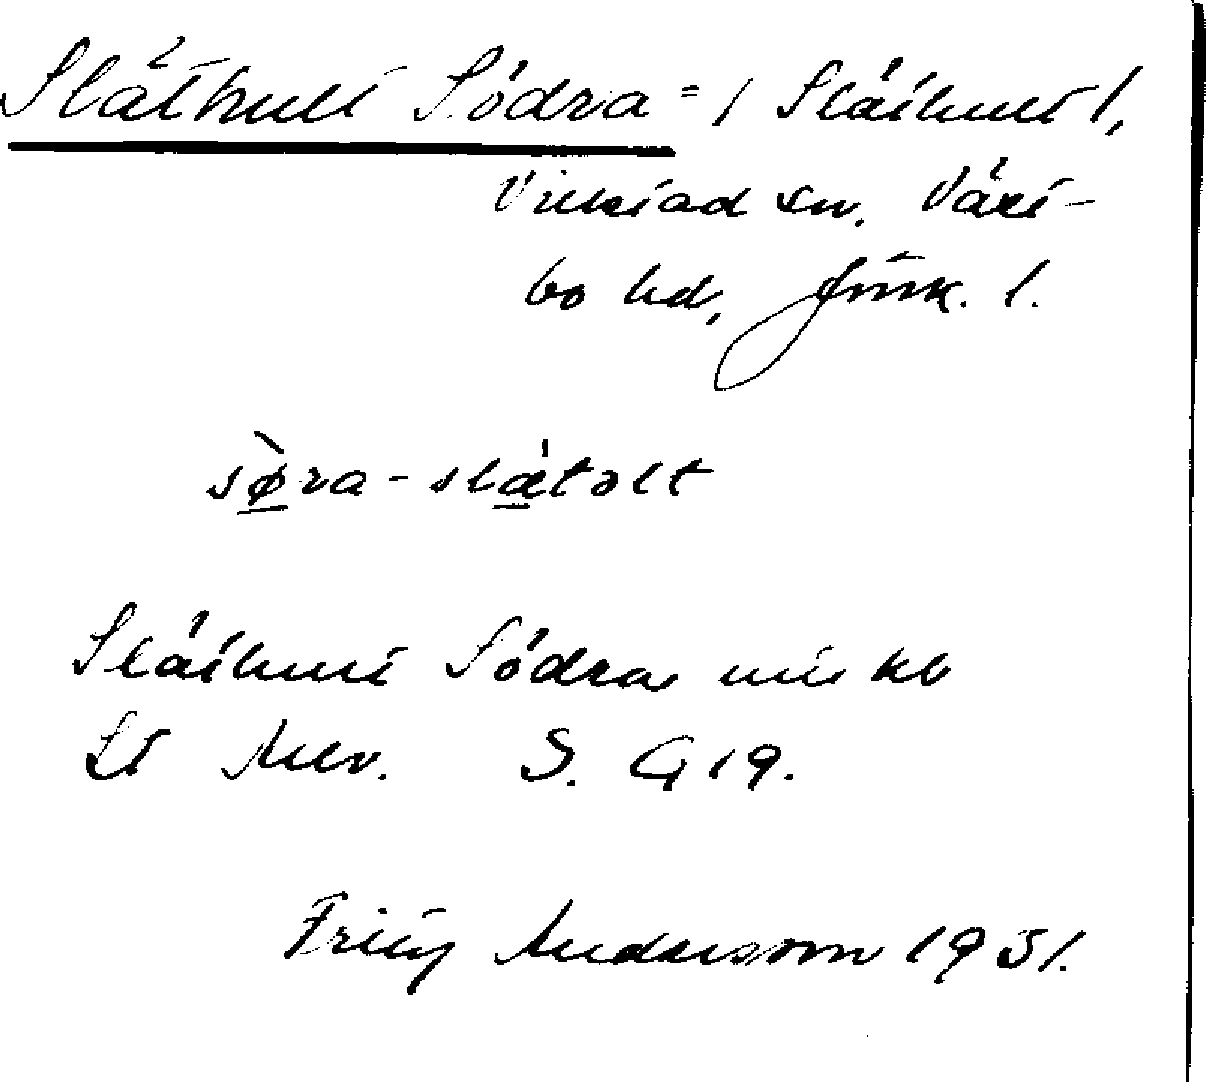 Släthult Södra = / Släthult 1,
Villstad sn. Väst-
bo hd, Jönk. l.
sø̀ra-slǽtəlt
Släthult Södra
S. G 19.
Fritz Andersson 1951.